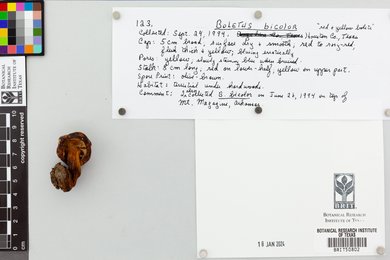 123. BOLETUS bicolor "red & yellow bolete"
Collected: Sept. 29, 1994. Houston Co., Texas
Cap: 5 cm broad, surface dry & smooth, red to rosy-red,
flesh thick & yellow, bluing erratically.
Pores: yellow, slowly staining blue when bruised
Stalk: 8 cm long, red on lower half, yellow on upper part.
Spore Print: olive-brown.
Habitat: under hardwoods.
Comment: I collected B. bicolor on June 26, 1994 on top of
Mt. Magazine, Arkansas
BRIT
BOTANICAL RESEARCH
INSTITUTE OF
BOTANICAL RESEARCH INSTITUTE
OF TEXAS
BRIT50802
18 JAN 2024
copyright reserved
cm
10